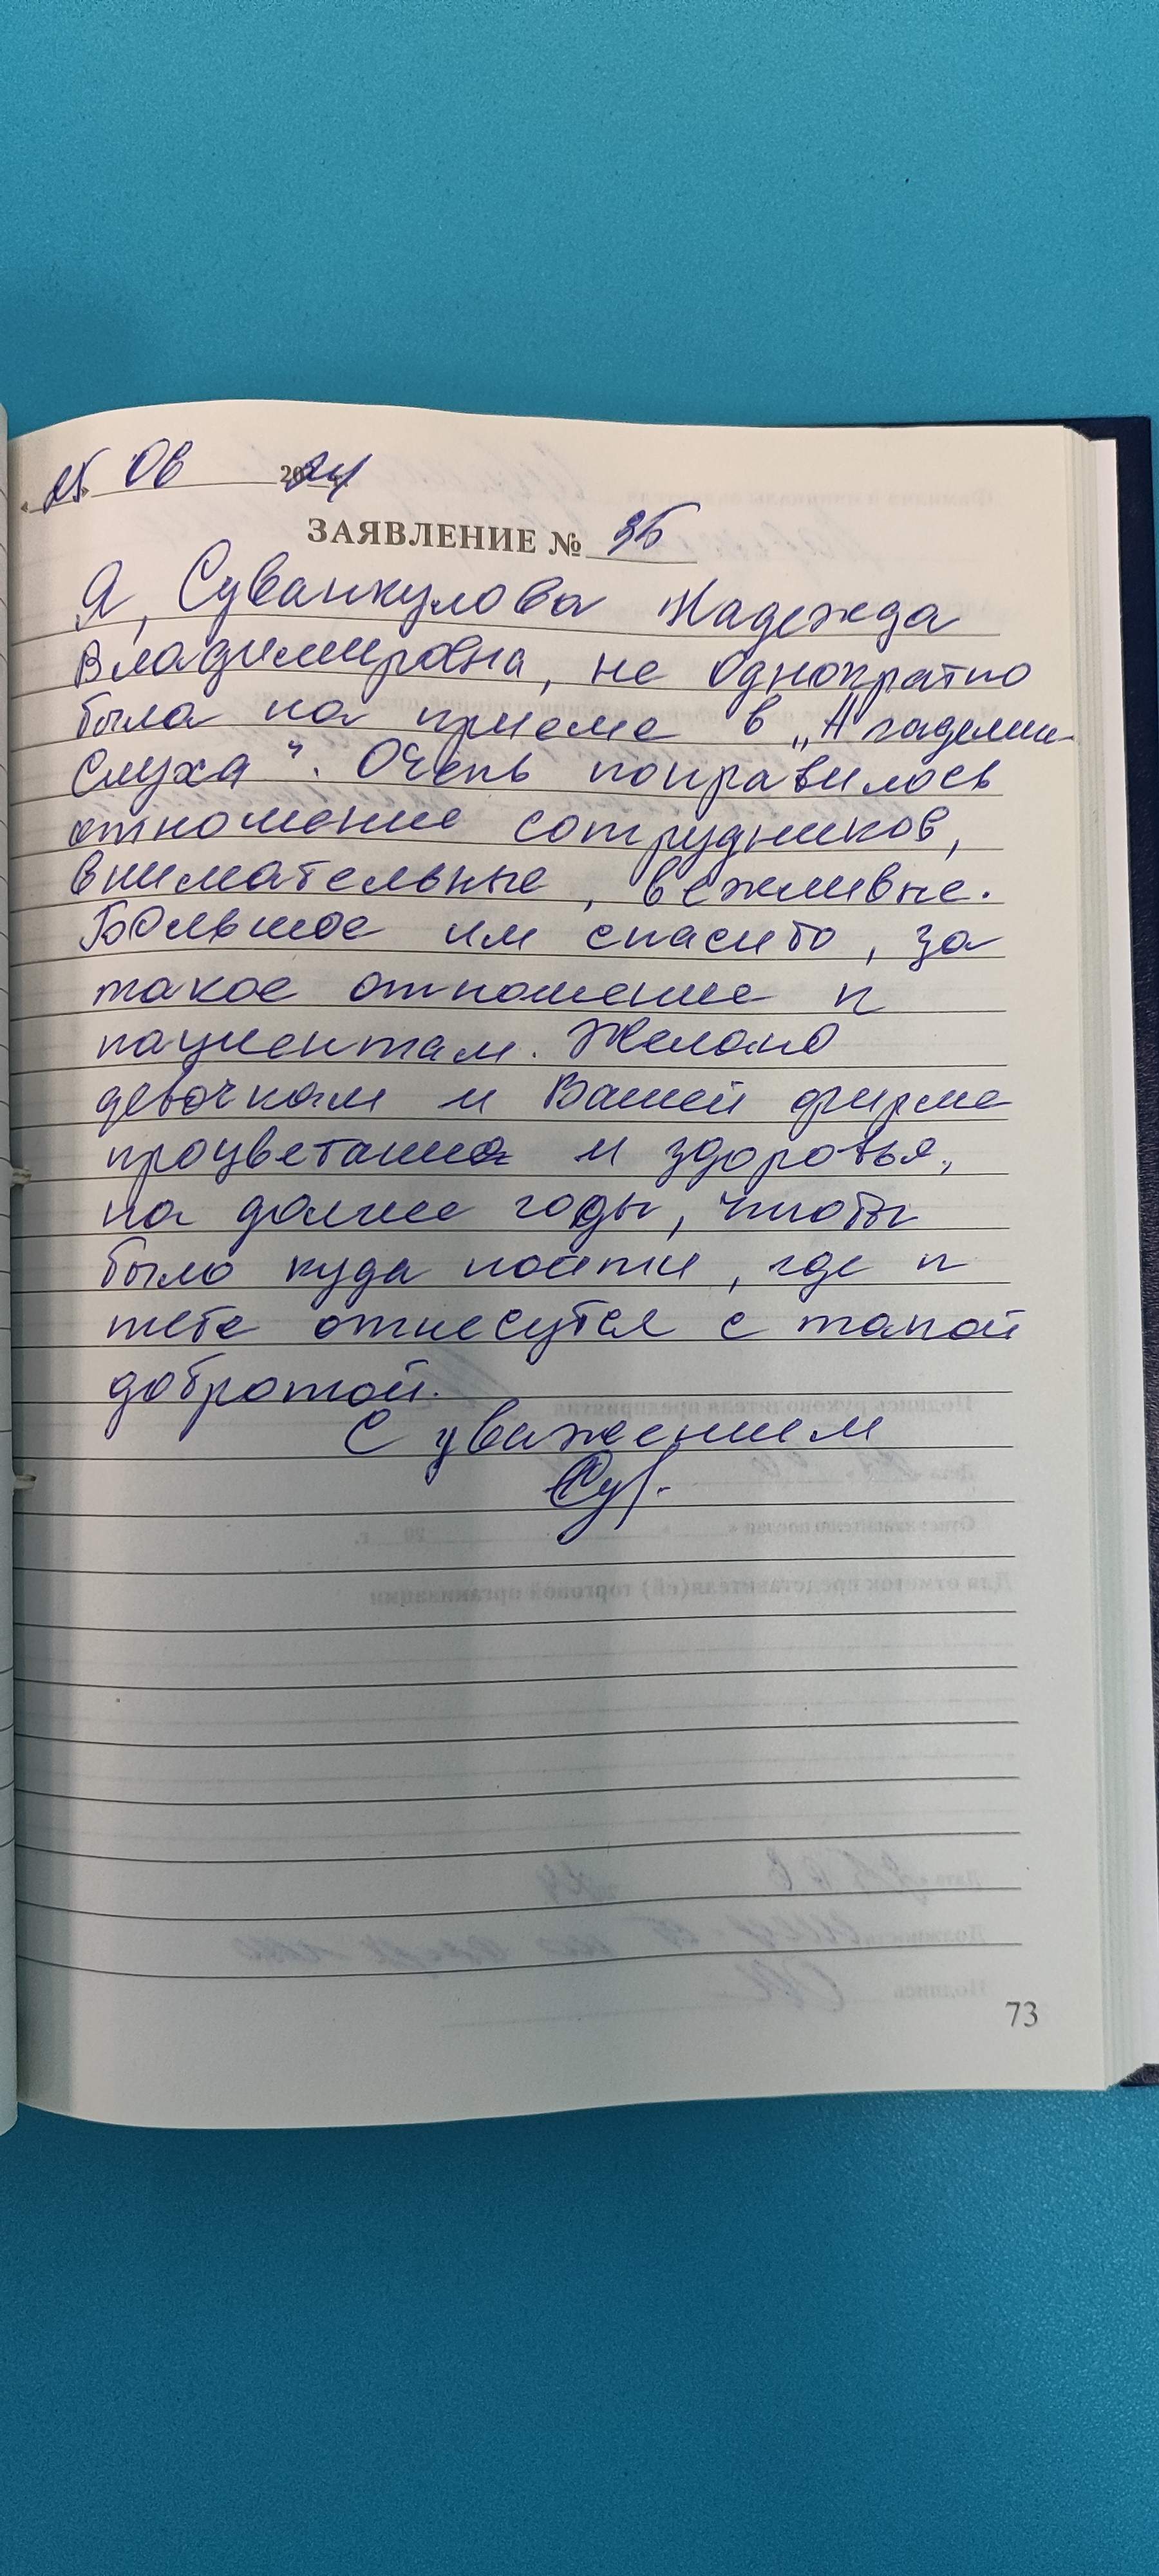 « 25 » 08 2024
ЗАЯВЛЕНИЕ № 36
Я, Суванкулова Надежда
Владимировна, не однократно
была на приеме в „Академии
Слуха“. Очень понравилось
отношение сотрудников,
внимательные, вежливые.
Большое им спасибо, за
такое отношение к
пациентам. Желаю
девочкам и Вашей фирме
процветания и здоровья,
на долгие годы, чтобы
было куда пойти, где к
тебе отнесутся с такой
добротой.
С уважением
73